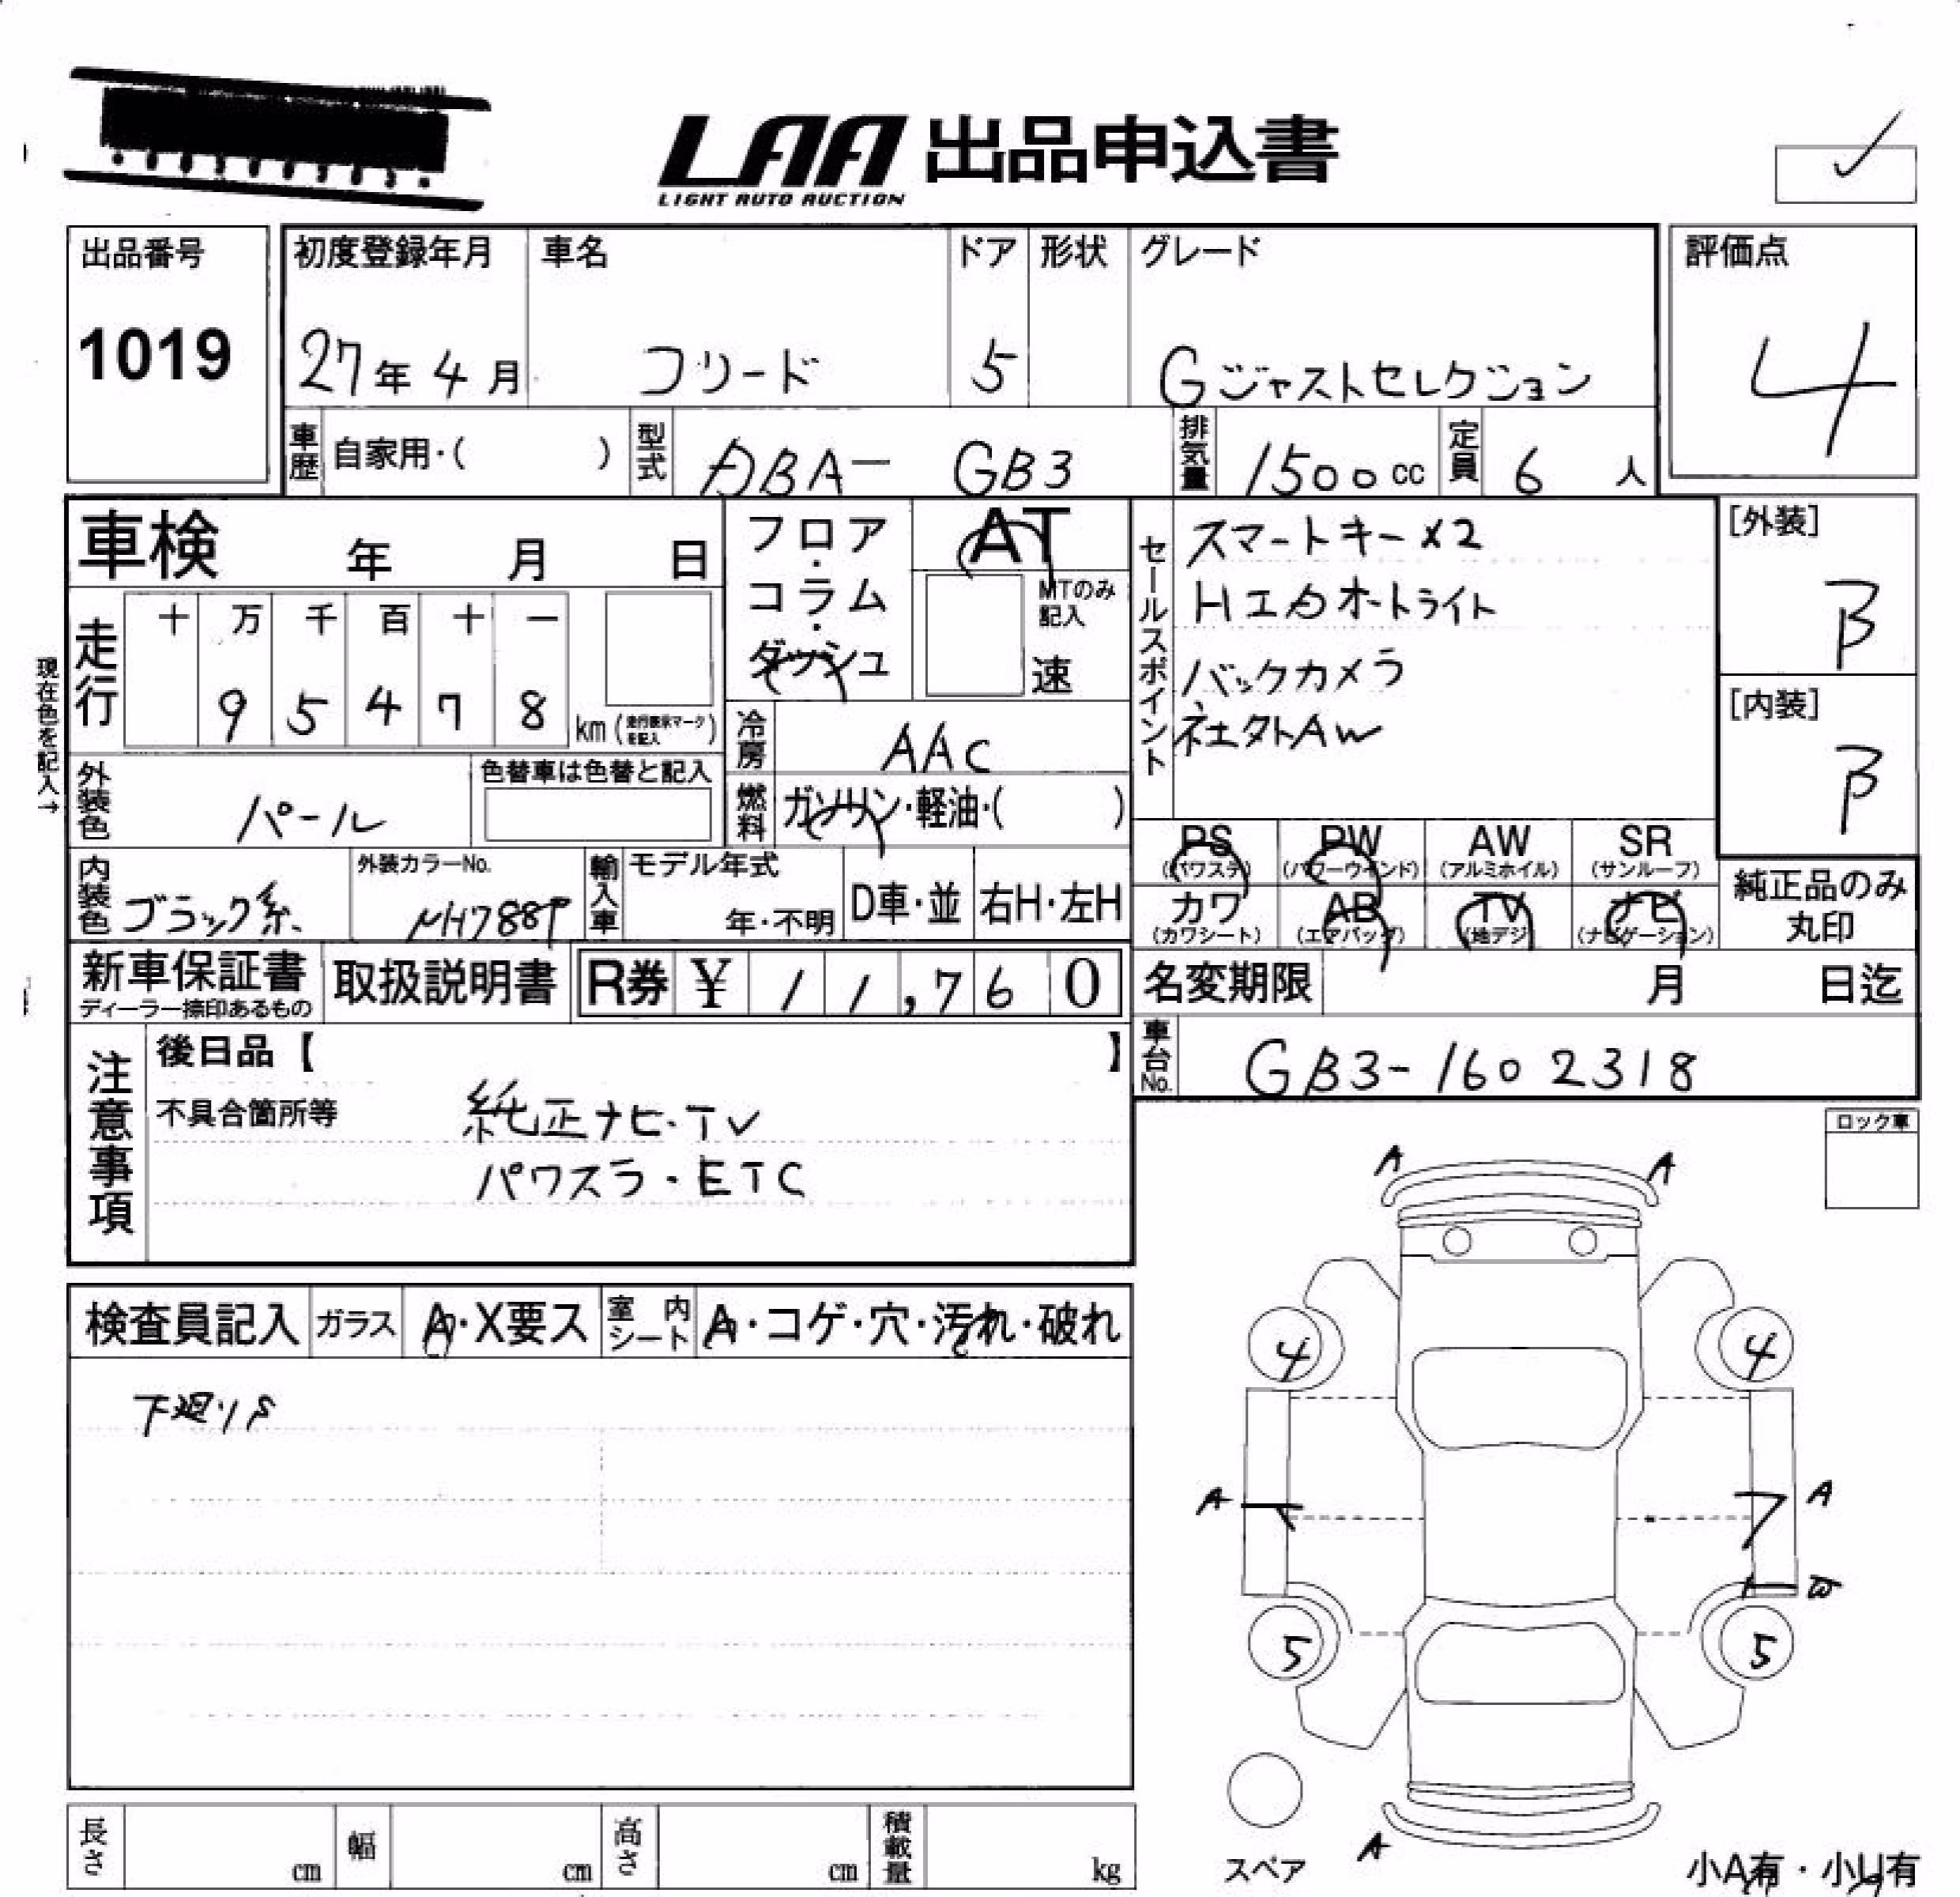 LAA 出品申込書
LIGHT AUTO AUCTION
出品番号
1019
初度登録年月 車名 ドア 形状 グレード
27年 4月 フリード 5 Gジャストセレクション
評価点
4
車歴 自家用・( ) 型式 DBA- GB3 排気量 1500cc 定員 6 人
車検 年 月 日
フロア・コラム・ダッシュ
AT
MTのみ記入
速
セールスポイント
スマートキー×2
HIDオートライト
バックカメラ
社外AW
[外装]
B
[内装]
B
現在色を記入→
走行
十 万 千 百 十 一
9 5 4 7 8 km (走行表示マークを記入)
冷房 AAC
外装色 パール
色替車は色替と記入
燃料 ガソリン・軽油・( )
PS (パワステ) PW (パワーウインド) AW (アルミホイル) SR (サンルーフ)
カワ (カワシート) AB (エアバッグ) TV (地デジ) ナビ (ナビゲーション)
純正品のみ丸印
内装色 ブラック系
外装カラーNo. NH788P
輸入車 モデル年式 年・不明 D車・並 右H・左H
新車保証書
ディーラー捺印あるもの
取扱説明書
R券 ¥ 11,760
名変期限 月 日迄
車台No. GB3-1602318
注意事項
後日品【 】
不具合箇所等
純正ナビ・TV
パワスラ・ETC
ロック車
検査員記入 ガラス A・X要ス 室内シート A・コゲ・穴・汚れ・破れ
下廻りS
A A
4 4
A A
W
5 5
A
スペア
小A有・小U有
長さ cm 幅 cm 高さ cm 積載量 kg